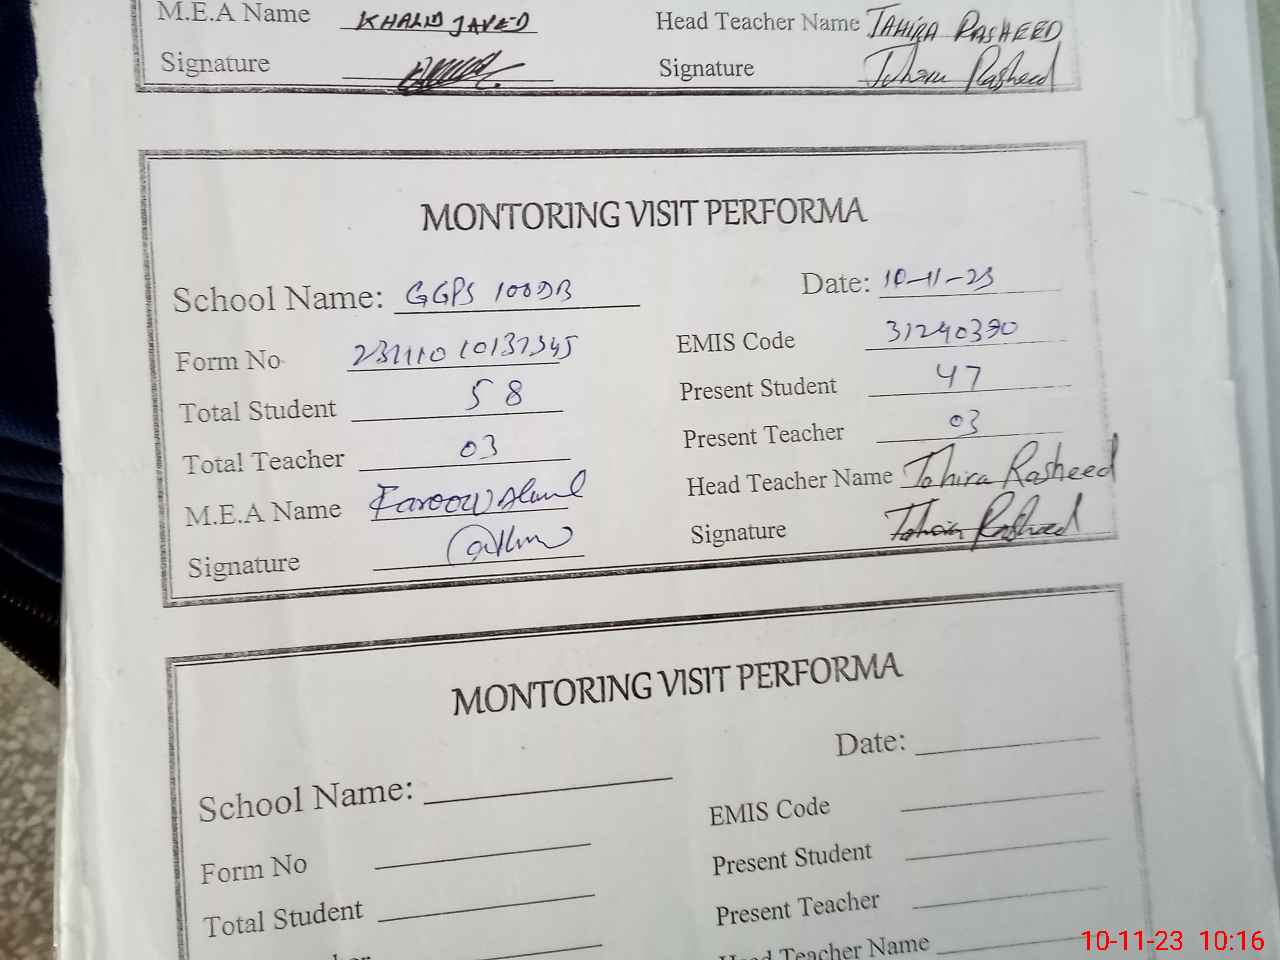 M.E.A Name KHALID JAVED Head Teacher Name TAHIRA RASHEED
Signature Signature Tahira Rasheed
MONTORING VISIT PERFORMA
School Name: GGPS 100DB Date: 10-11-23
Form No 231110 10137345 EMIS Code 31240390
Total Student 58 Present Student 47
Total Teacher 03 Present Teacher 03
M.E.A Name Farooq Head Teacher Name Tahira Rasheed
Signature Signature Tahira Rasheed
MONTORING VISIT PERFORMA
School Name: Date:
Form No EMIS Code
Total Student Present Student
Present Teacher
Head Teacher Name
10-11-23 10:16